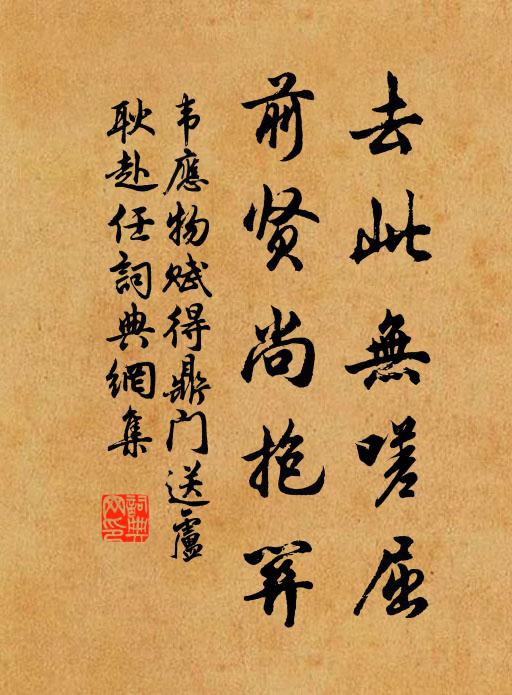 去此無嗟屈
前贤尚抱關
韦應物赋得鼎门送盧
耿赴任詞典網集
詞典
网印